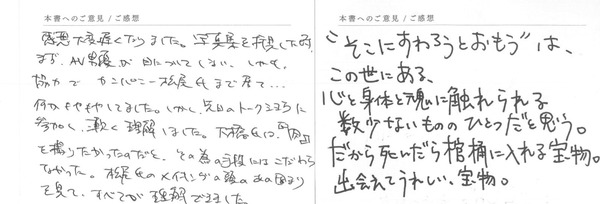 本書へのご意見 / ご感想
感想大変遅くなりました。写真集を拝見した時、
まず、AV男優が目についてしまい、しかも、
協力で カンパニー松尾氏まで居て…
何かもやもやしてました。しかし、先日のトークショウに
参加し、凄く理解しました。大橋氏は、
を撮りたかったのだと、その為の手段にはこだわら
なかった。松尾氏の
を見て、すべてが理解できました
本書へのご意見 / ご感想
"そこにすわろうとおもう"は、
この世にある、
心と身体と魂に触れられる
数少ないもののひとつだと思う。
だから死んだら棺桶に入れる宝物。
出会えてうれしい、宝物。